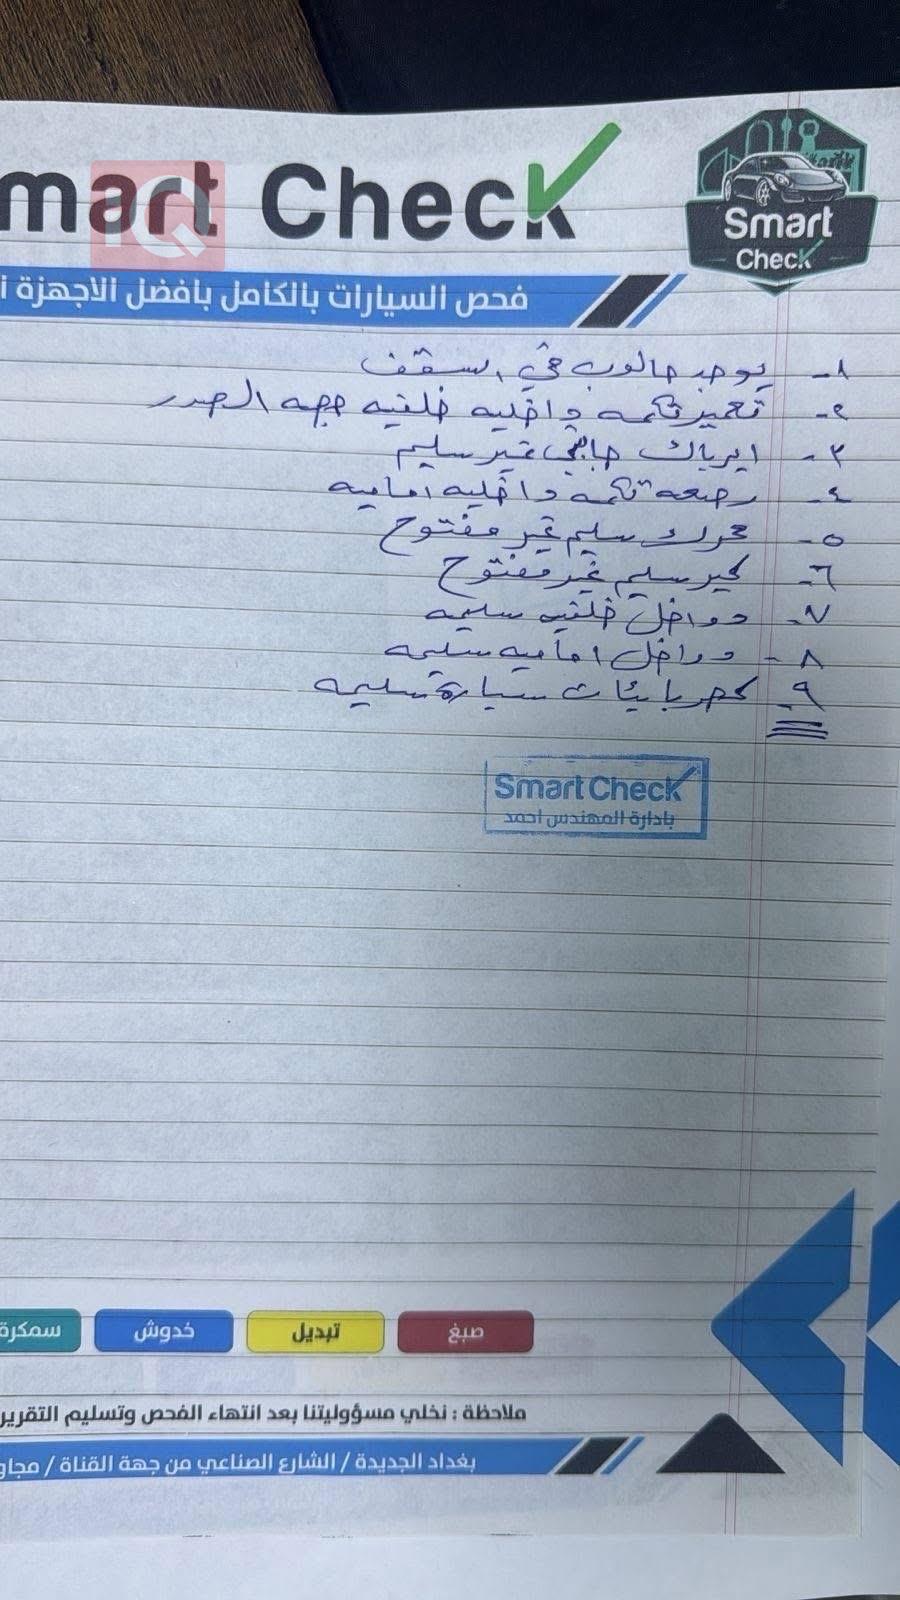 Smart
Check
mart Check
IQ
فحص السيارات بالكامل بافضل الاجهزة ا
١- يوجد حالوب في السقف
٢- تعمير تكمه داخليه خلفيه جهه الصدر
٣- ايرباك جانبي غير سليم
٤- رصعه تكمه داخليه اماميه
٥- محرك سليم غير مفتوح
٦- كير سليم غير مفتوح
٧- دواخل خلفيه سليمه
٨- دواخل اماميه سليمه
٩- كهربائيات سيارة سليمه
Smart Check
بادارة المهندس احمد
صبغ تبديل خدوش سمكرة
ملاحظة : نخلي مسؤوليتنا بعد انتهاء الفحص وتسليم التقرير
بغداد الجديدة / الشارع الصناعي من جهة القناة / مجاو